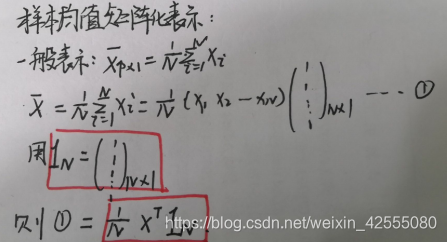 样本均值矩阵化表示：
一般表示: X̄p×1 = 1/N Σ_{i=1}^{N} Xi
X̄ = 1/N Σ_{i=1}^{N} Xi = 1/N (x1 x2 — xN) (1 1 ⋮ 1)N×1 --- ①
用 1N = (1 1 ⋮ 1)N×1
则 ① = 1/N X^T 1N
https://blog.csdn.net/weixin_42555080